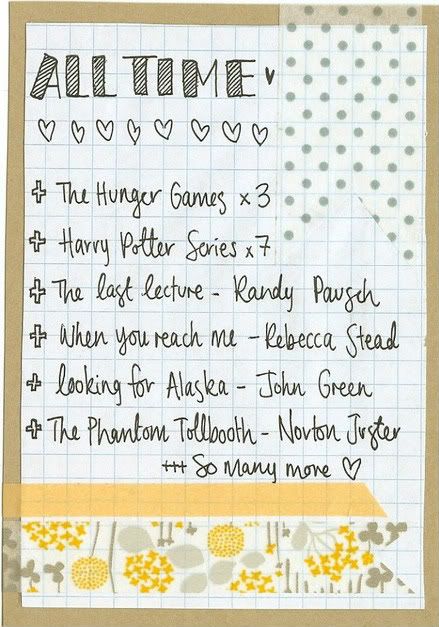 ALL TIME ♥
♡ ♡ ♡ ♡ ♡ ♡ ♡ ♡
+ The Hunger Games x 3
+ Harry Potter Series x 7
+ The last lecture - Randy Pausch
+ When you reach me - Rebecca Stead
+ looking for Alaska - John Green
+ The Phantom Tollbooth - Norton Juster
+++ So many more ♡